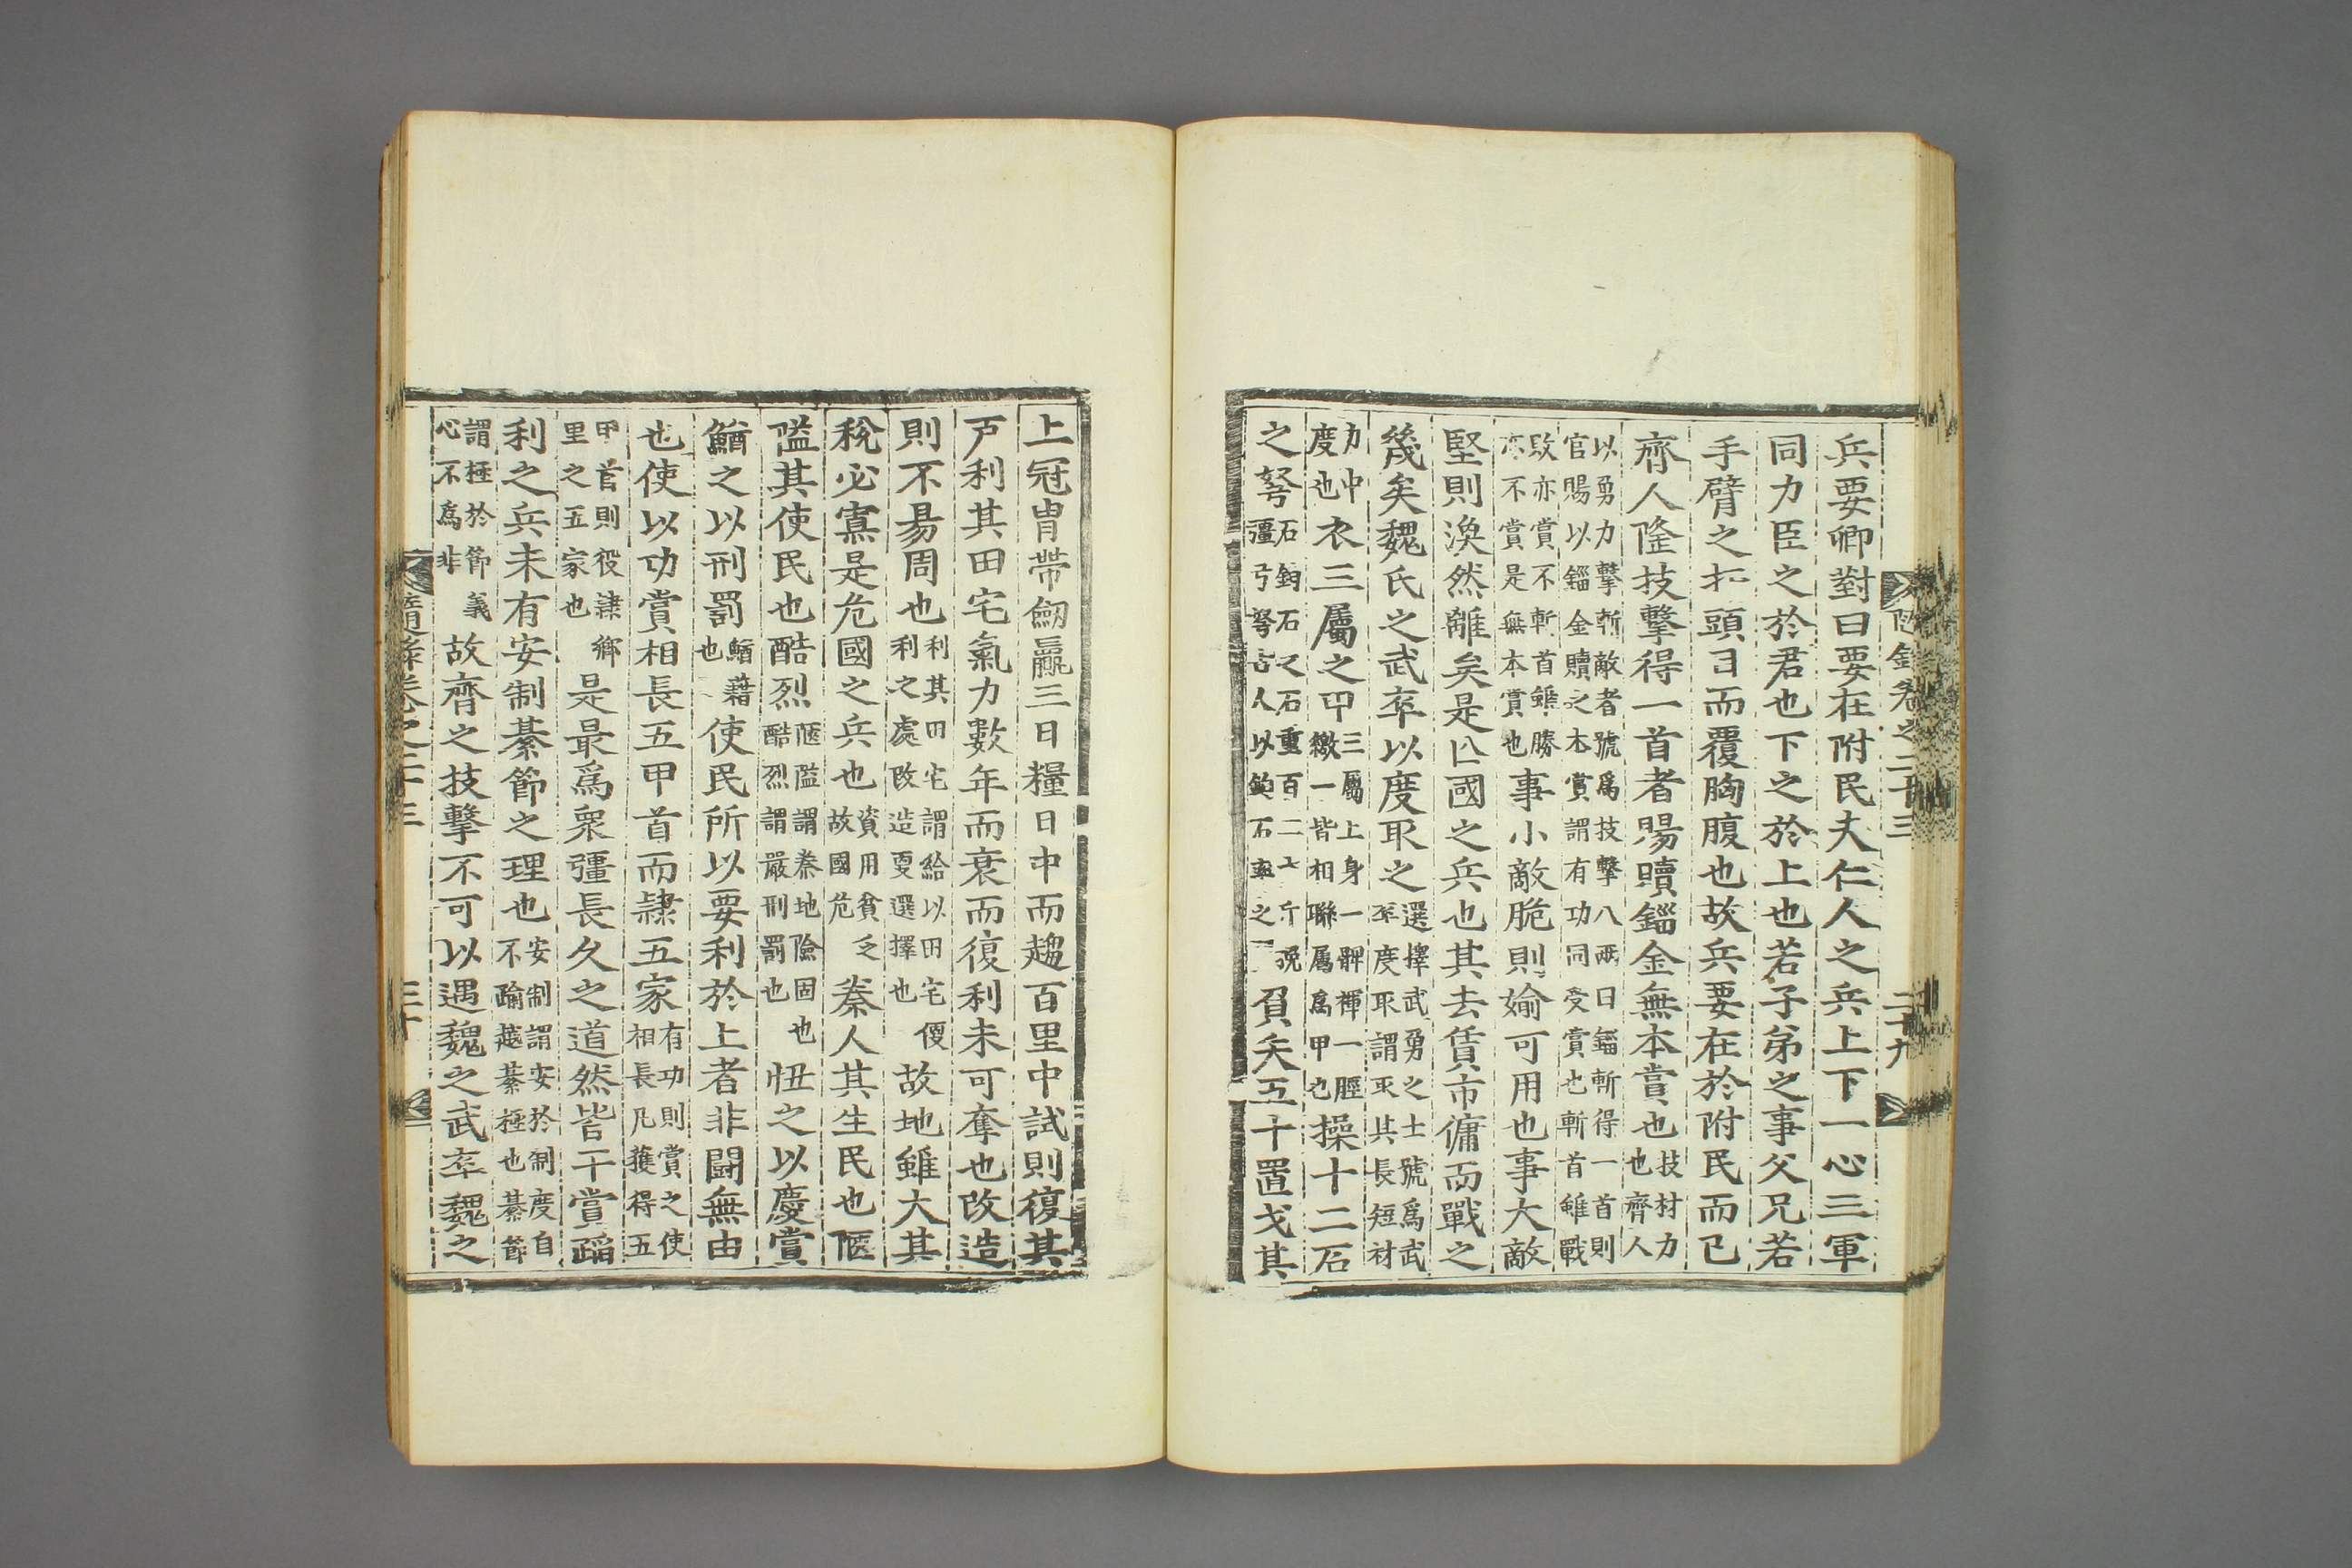 兵要卿對曰要在附民夫仁人之兵上下一心三軍
同力臣之於君也下之於上也若子弟之事父兄若
手臂之扞頭目而覆胸腹也故兵要在於附民而已
齊人隆技擊得一首者賜贖錙金無本賞也技材力也齊人
以勇力擊斬敵者號爲技擊八兩曰錙斬得一首則官賜以錙金贖之本賞謂有功同受賞也斬首雖戰
敗亦賞不斬首雖勝亦不賞是無本賞也事小敵脆則婾可用也事大敵
堅則渙然離矣是亡國之兵也其去賃市傭而戰之
幾矣魏氏之武卒以度取之選擇武勇之士號爲武卒度取謂取其長短材
力中度也衣三屬之甲三屬上身一髀褌一脛繳一皆相聯屬爲甲也操十二石
之弩石鈞石之石重百二十斤彊弓弩古人以鈞石率之負矢五十置戈其
隨錄卷之二十三 二十九
上冠冑帶劒贏三日糧日中而趨百里中試則復其
戶利其田宅氣力數年而衰而復利未可奪也改造
則不易周也利其田宅謂給以田宅便利之處改造更選擇也故地雖大其
稅必寡是危國之兵也資用貧乏故國危秦人其生民也陿
隘其使民也酷烈陿隘謂秦地險固也酷烈謂嚴刑罰也忸之以慶賞
鰌之以刑罰鰌藉也使民所以要利於上者非鬪無由
也使以功賞相長五甲首而隷五家有功則賞之使相長凡獲得五
甲首則役隷鄉里之五家也是最爲衆彊長久之道然皆干賞蹈
利之兵未有安制綦節之理也安制謂安於制度自不踰越綦極也綦節
謂極於節義心不爲非故齊之技擊不可以遇魏之武卒魏之
隨錄卷之二十三 三十